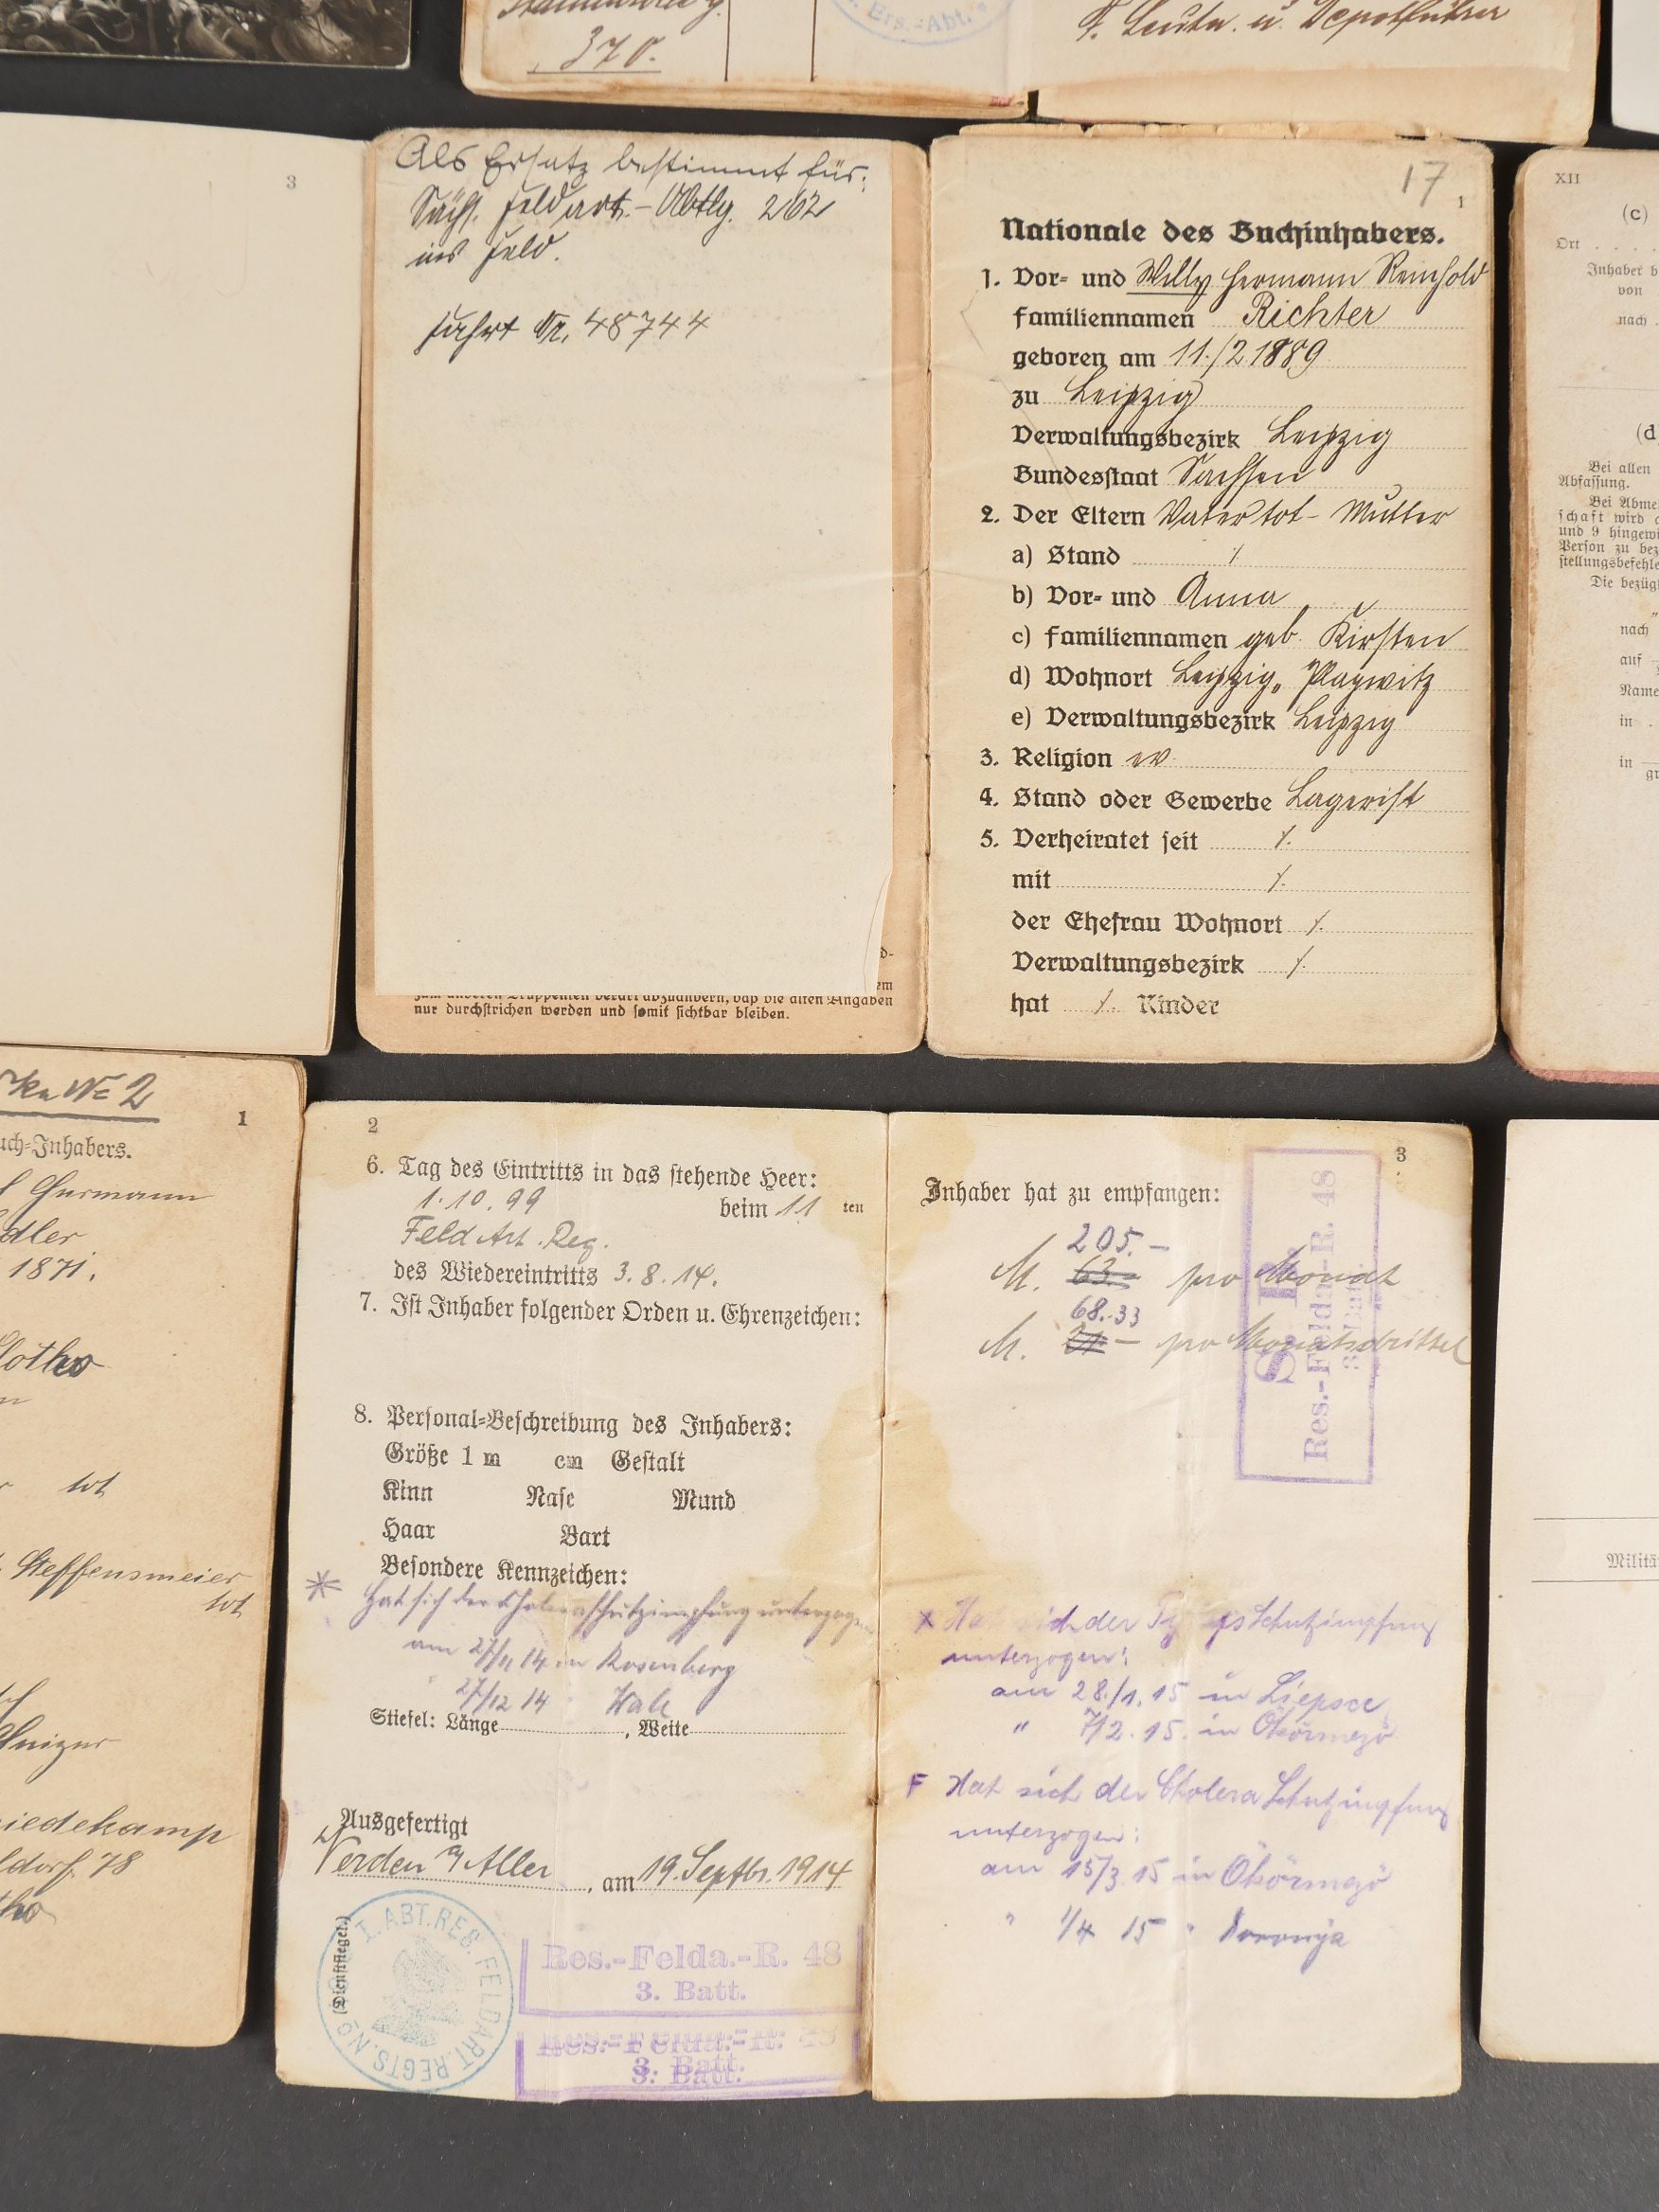 370.
Ers.-Abt.
F. Leutn. u. Depotführer
3
Als Ersatz bestimmt für:
Sächs. Feldart.-Abtlg. 262
ins Feld.
Fahrt Nr. 48744
zum anderen Truppenteil derart abzuändern, daß die alten Angaben
nur durchstrichen werden und somit sichtbar bleiben.
17
1
Nationale des Buchinhabers.
1. Vor- und Willy Hermann Reinhold
Familiennamen Richter
geboren am 11./2.1889
zu Leipzig
Verwaltungsbezirk Leipzig
Bundesstaat Sachsen
2. Der Eltern Vater tot - Mutter
a) Stand ⁒
b) Vor- und Anna
c) Familiennamen geb. Kirsten
d) Wohnort Leipzig, Plagwitz
e) Verwaltungsbezirk Leipzig
3. Religion ev
4. Stand oder Gewerbe Lagerist
5. Verheiratet seit ⁒
mit ⁒
der Ehefrau Wohnort ⁒
Verwaltungsbezirk ⁒
hat ⁒ Kinder
XII
(c)
Ort
Inhaber b
von
nach
(d
Bei allen
Abfassung.
Bei Abme
schaft wird
und 9 hingewi
Person zu bez
stellungsbefehle
Die bezüg
nach
auf
Name
in
in
gr
No 2
1
uch-Inhabers.
Hermann
dler
1871.
lotho
tot
Steffensmeier
tot
iedekamp
ldorf 78
tho
2
6. Tag des Eintritts in das stehende Heer:
1.10.99 beim 11 ten
Feld Art. Reg.
des Wiedereintritts 3.8.14.
7. Ist Inhaber folgender Orden u. Ehrenzeichen:
8. Personal-Beschreibung des Inhabers:
Größe 1 m cm Gestalt
Kinn Nase Mund
Haar Bart
Besondere Kennzeichen:
Hat sich der Choleraschutzimpfung unterzogen
am 27/11 14 in Rosenberg
27/12 14
Stiefel: Länge , Weite
Ausgefertigt
Verden a/Aller, am 19. Septbr. 1914
(Dienstsiegel.)
I. ABT. RES. FELDART. REGTS. No
Res.-Felda.-R. 48
3. Batt.
Res.-Felda.-R. 48
3. Batt.
3
Inhaber hat zu empfangen:
205.-
M. 63.- pro Monat
68.33
M. 21.- pro Monatsdrittel
S. B.
Res.-Felda.-R. 48
3. Batt.
x Hat sich der Typhusschutzimpfung
unterzogen:
am 28./1.15 in Liepsce
" 7/2.15. in Ökörmezö
F Hat sich der Cholera Schutzimpfung
unterzogen:
am 15/3.15 in Ökörmezö
" 1/4 15 "
Militä